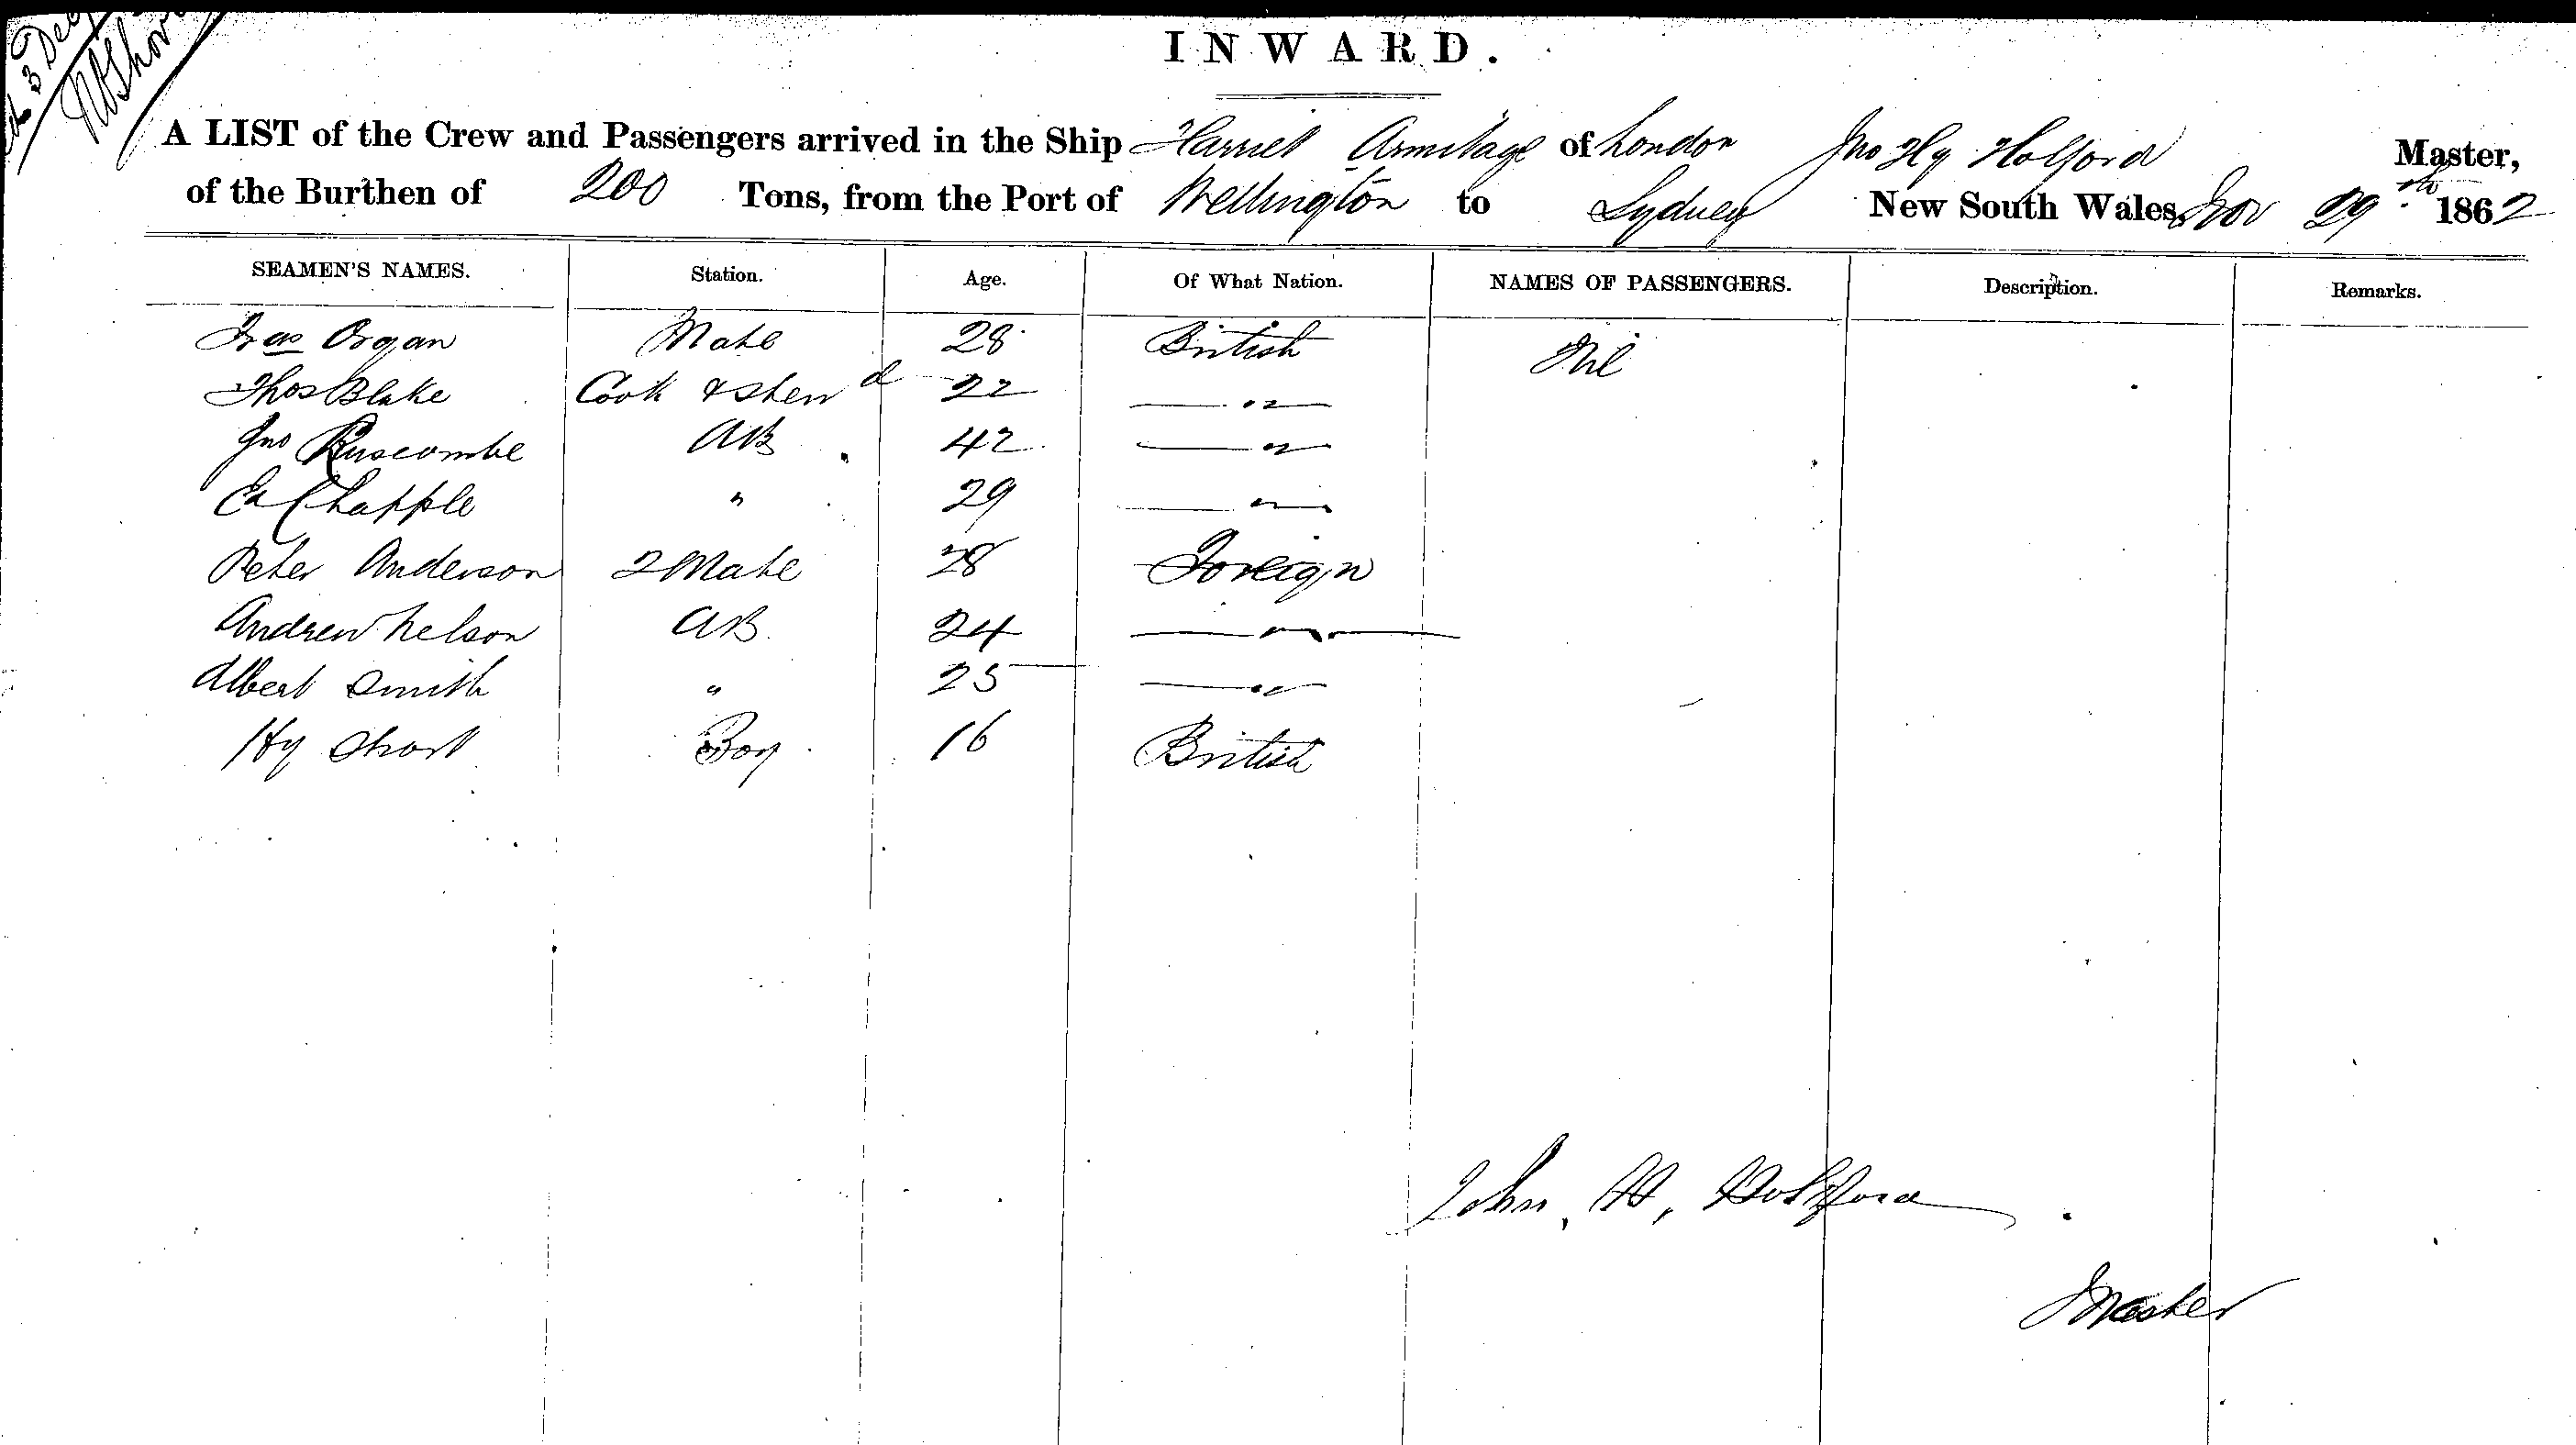 3 Dec
INWARD.
A LIST of the Crew and Passengers arrived in the Ship Harriet Armitage of London Jno Hy Holford Master,
of the Burthen of 200 Tons, from the Port of Wellington to Sydney New South Wales, Nov 29th 1862
SEAMEN'S NAMES. Station. Age. Of What Nation. NAMES OF PASSENGERS. Description. Remarks.
Fras Organ Mate 28 British Nil
Thos Blake Cook & Stewd 22 — " —
Jno Ruscombe AB 42 — " —
Ed Chapple " 29 — " —
Peter Anderson 2 Mate 28 Foreign
Andrew Nelson AB 24 — " —
Albert Smith " 25 — " —
Hy Short Boy 16 British
John, H, Holford
Master